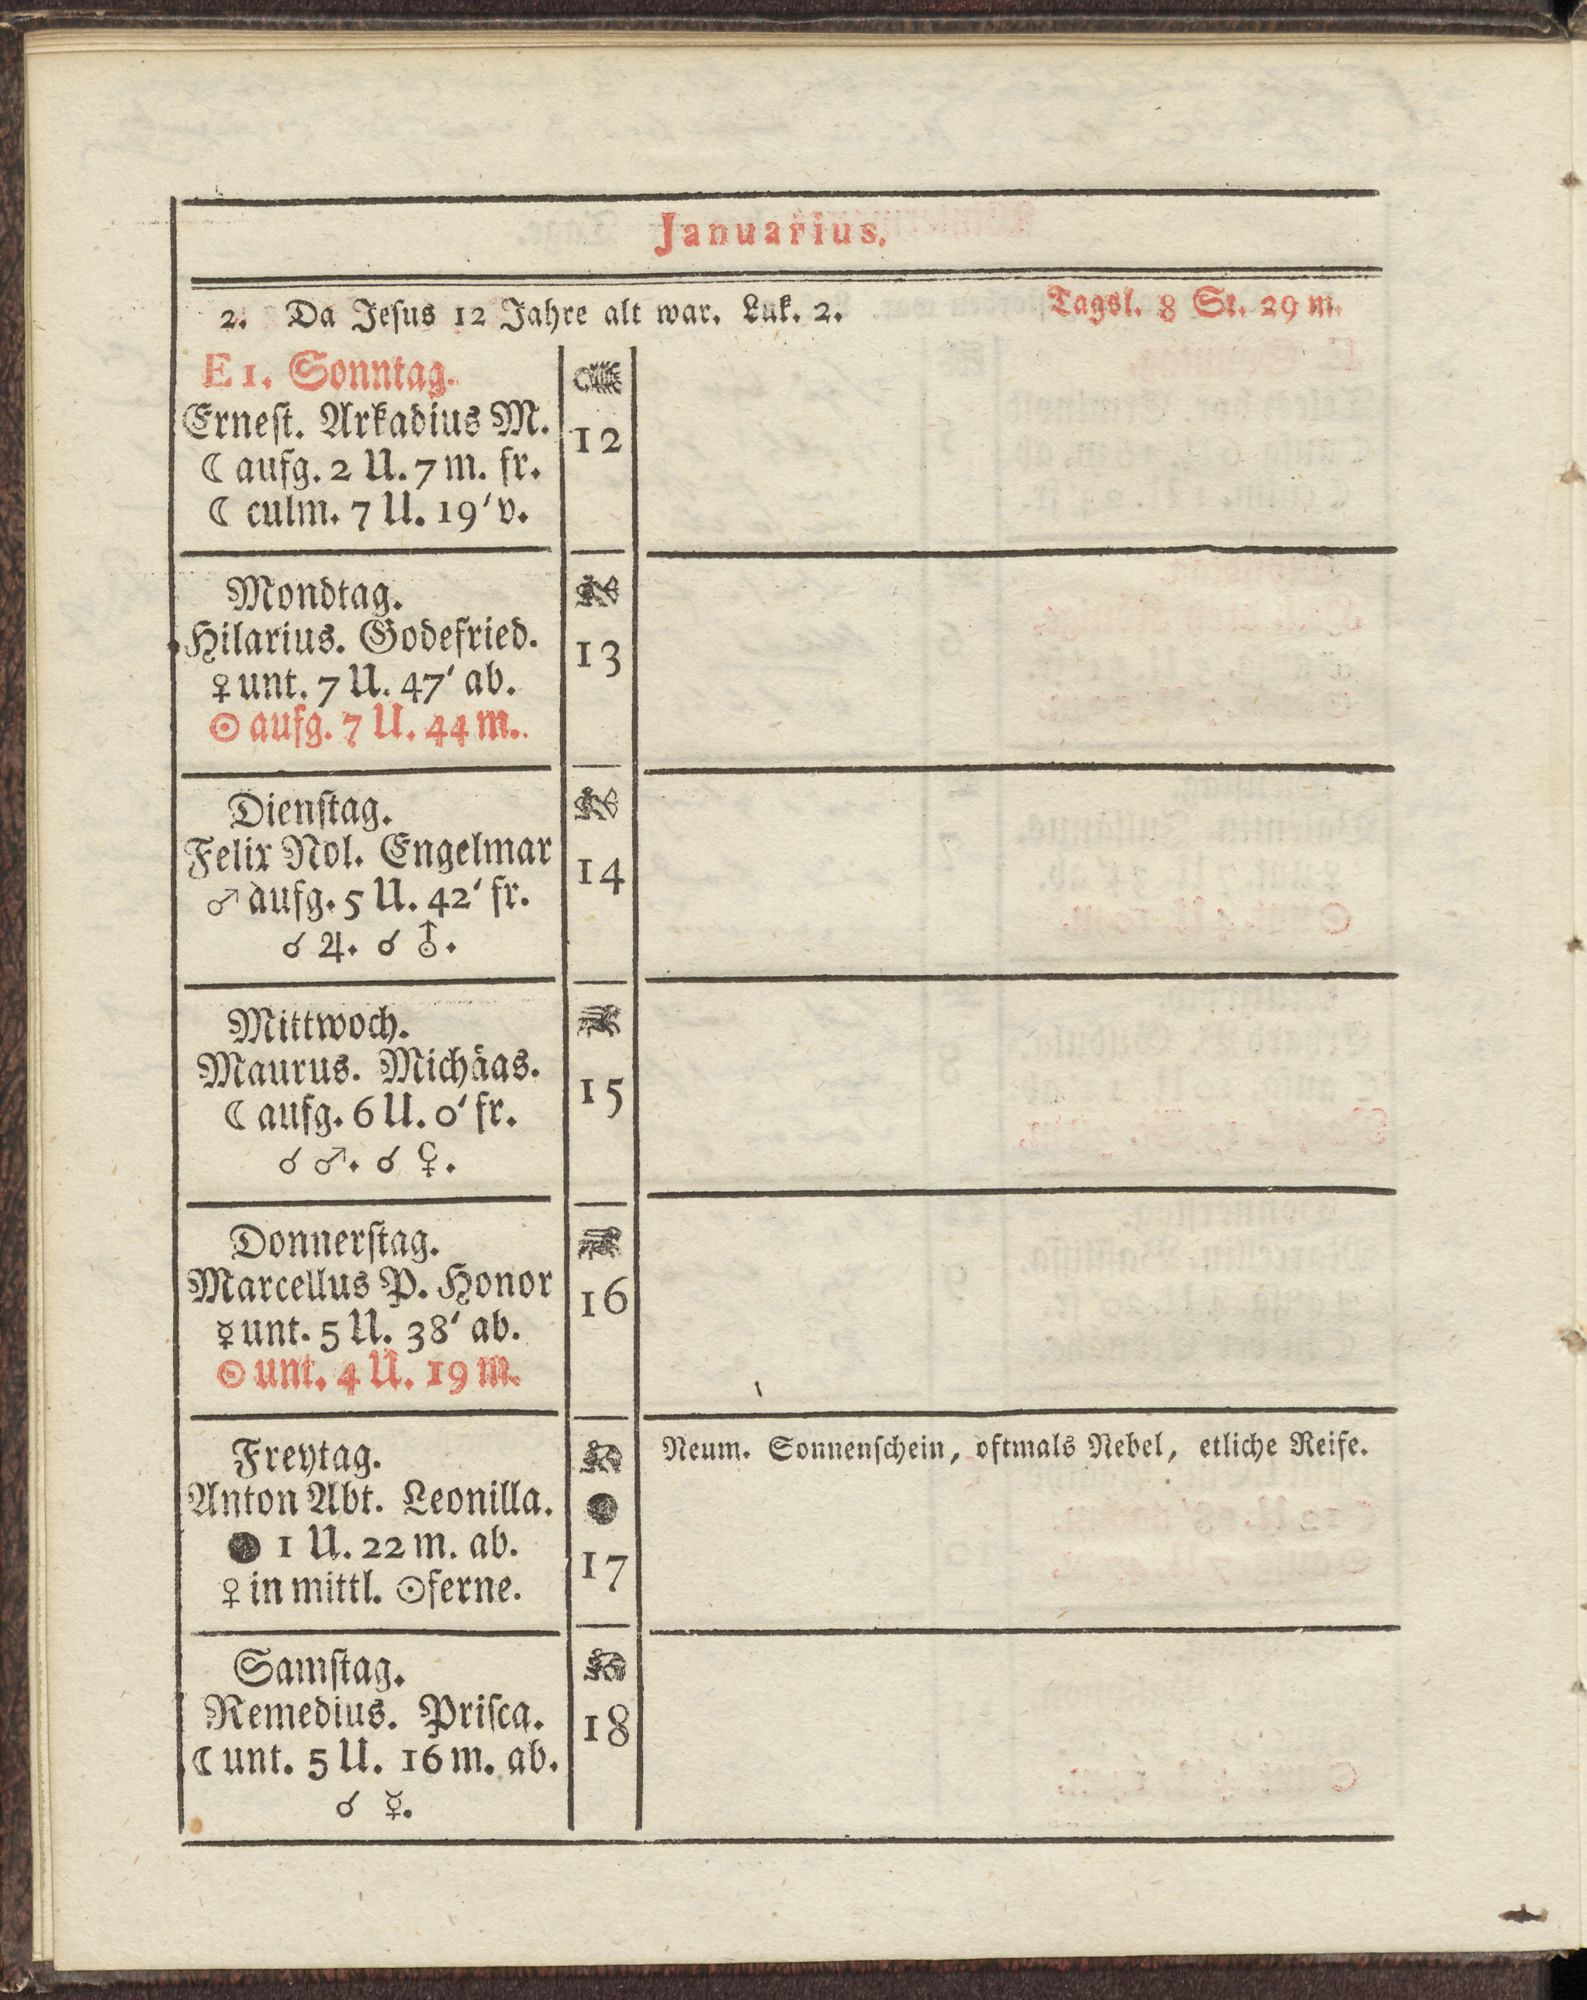 Januarius.
2. Da Jeſus 12 Jahre alt war. Luk. 2. Tagsl. 8 St. 29 m.
E 1. Sonntag.
Erneſt. Arkadius M.
12
☾ aufg. 2 U. 7 m. fr.
☾ culm. 7 U. 19' v.
Mondtag.
Hilarius. Godefried.
13
♀ unt. 7 U. 47' ab.
☉ aufg. 7 U. 44 m.
Dienſtag.
Felix Nol. Engelmar
14
♂ aufg. 5 U. 42' fr.
☌ ♃. ☌ ⛢.
Mittwoch.
Maurus. Michäas.
15
☾ aufg. 6 U. 0' fr.
☌ ♂. ☌ ♀.
Donnerſtag.
Marcellus P. Honor
16
☿ unt. 5 U. 38' ab.
☉ unt. 4 U. 19 m.
Freytag.
Neum. Sonnenſchein, oftmals Nebel, etliche Reife.
Anton Abt. Leonilla.
● 1 U. 22 m. ab.
17
♀ in mittl. ☉ferne.
Samſtag.
Remedius. Priſca.
18
☾ unt. 5 U. 16 m. ab.
☌ ☿.